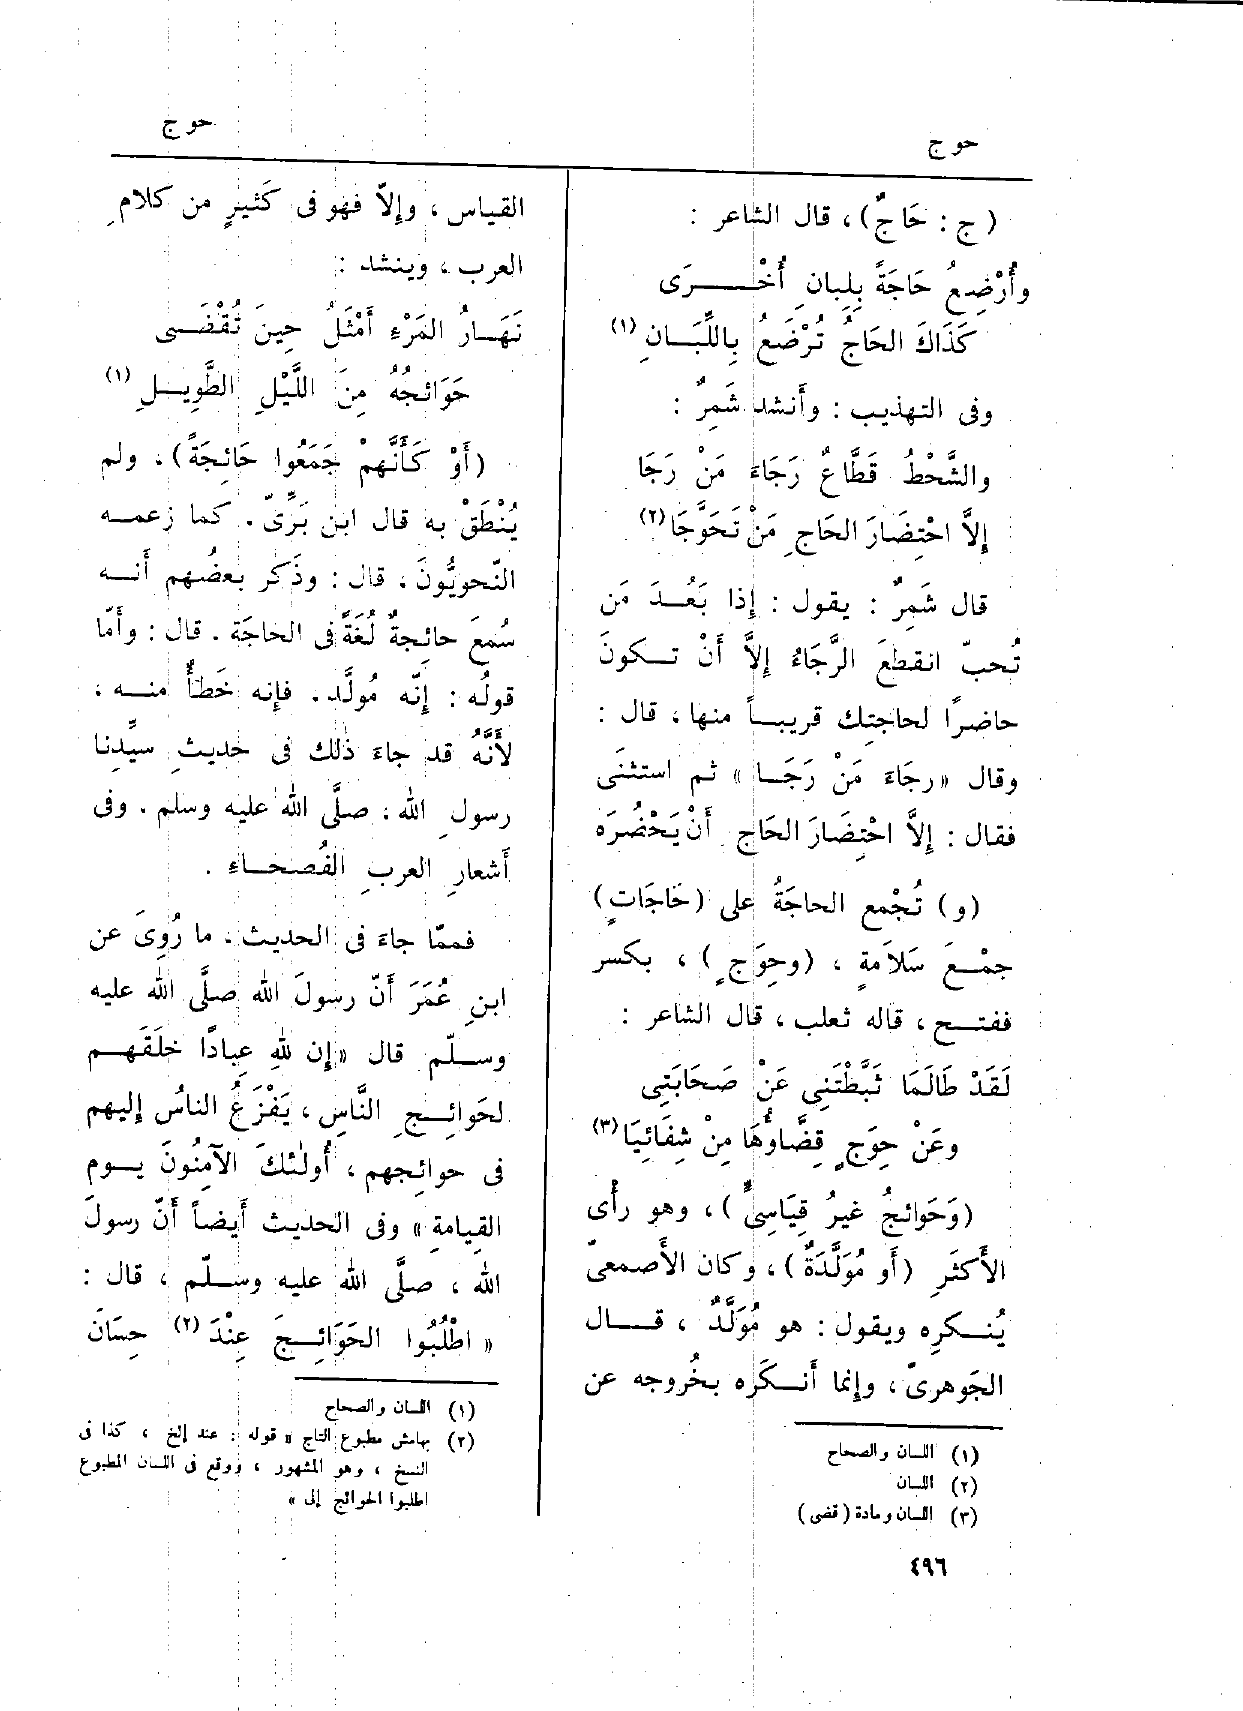 حوج
حوج
(ج : حَاجٌ) ، قال الشاعر :
وأُرْضِعُ حَاجَةً بِلِبانِ أُخْـــرَى
كَذَاكَ الحَاجُ تُرْضَعُ بِاللِّبَـانِ (١)
وفى التهذيب : وأَنشد شَمِرٌ :
والشَّحْطُ قَطَّاعٌ رَجَاءَ مَنْ رَجَا
إِلاَّ احْتِضَارَ الحَاجِ مَنْ تَحَوَّجَا (٢)
قال شَمِرٌ : يقول : إِذا بَعُـد مَن
تُحبّ انقطعَ الرَّجَاءُ إِلاَّ أَنْ تـكونَ
حاضرًا لحاجتِك قريبـاً منها ، قال :
وقال «رجَاءَ مَنْ رَجَـا» ثم استثنَى
فقال : إِلاَّ احْتِضَارَ الحَاجِ أَنْ يَحْضُرَه
(و) تُجْمع الحاجَةُ على (حَاجَاتٍ)
جمْـعَ سَلاَمةٍ ، (وحِوَجٍ) ، بكسر
ففتـح ، قاله ثعلب ، قال الشاعر :
لَقَدْ طَالَمَا ثَبَّطْتَنِى عَنْ صَحَابَتِى
وعَنْ حِوَجٍ قِضَّاؤُهَا مِنْ شِفَائِيَا (٣)
(وَحَوائجُ غيرُ قِيَاسِىٍّ) ، وهو رأْى
الأَكثَرِ (أَو مُوَلَّدَةٌ) ، وكان الأَصمعىّ
يُنـكرِه ويقول : هو مُوَلَّدٌ ، قـال
الجَوهرىّ ، وإِنما أَنـكَره بخُروجه عن
(١) اللسان والصحاح
(٢) اللسان
(٣) اللسان ومادة (قضى)
القياس ، وإِلاّ فهو فى كَثيرٍ من كلامِ
العرب ، وينشد :
نَهَـارُ المَرْءِ أَمْثَلُ حِينَ تُقْضَـى
حَوَائجُهُ مِنَ اللَّيْلِ الطَّوِيـلِ (١)
(أَوْ كَأَنَّهمْ جَمَعُوا حَائِجَةً) ، ولم
يُنْطَقْ به قال ابن بَرِّىّ . كما زعمـه
النّحويُّونَ ، قال : وذَكر بعضُهم أَنـه
سُمعَ حائِجةٌ لُغَةً فى الحاجَة . قال : وأَمّا
قولُه : إِنّه مُولَّد . فإِنه خَطأٌ منـه ،
لأَنّهُ قد جاءَ ذٰلك فى حديثِ سيِّدِنا
رسولِ الله : صلَّى الله عليه وسلم . وفى
أَشعارِ العربِ الفُصحـاءِ .
فممّا جاءَ فى الحديث . ما رُوِىَ عن
ابنِ عُمَرَ أَنّ رسولَ الله صلَّى الله عليه
وسـلّم قال «إِن لله عِبادًا خلَقَهـم
لحَوائِـجِ النَّاسِ ، يَفْزَعُ الناسُ إِليهم
فى حوائجهم ، أُولٰئكَ الآمِنُونَ يـوم
القيامةِ » وفى الحديث أَيضاً أَنّ رسولَ
الله ، صلَّى الله عليه وسـلّم ، قال :
« اطْلُبُوا الحَوَائِـجَ عِنْدَ (٢) حِسَانِ
(١) اللسان والصحاح
(٢) بهامش مطبوع التاج « قوله : عند إلخ ، كذا فى
النسخ ، وهو المشهور ، ووقع فى اللسان المطبوع
اطلبوا الحوائج إلى »
٤٩٦